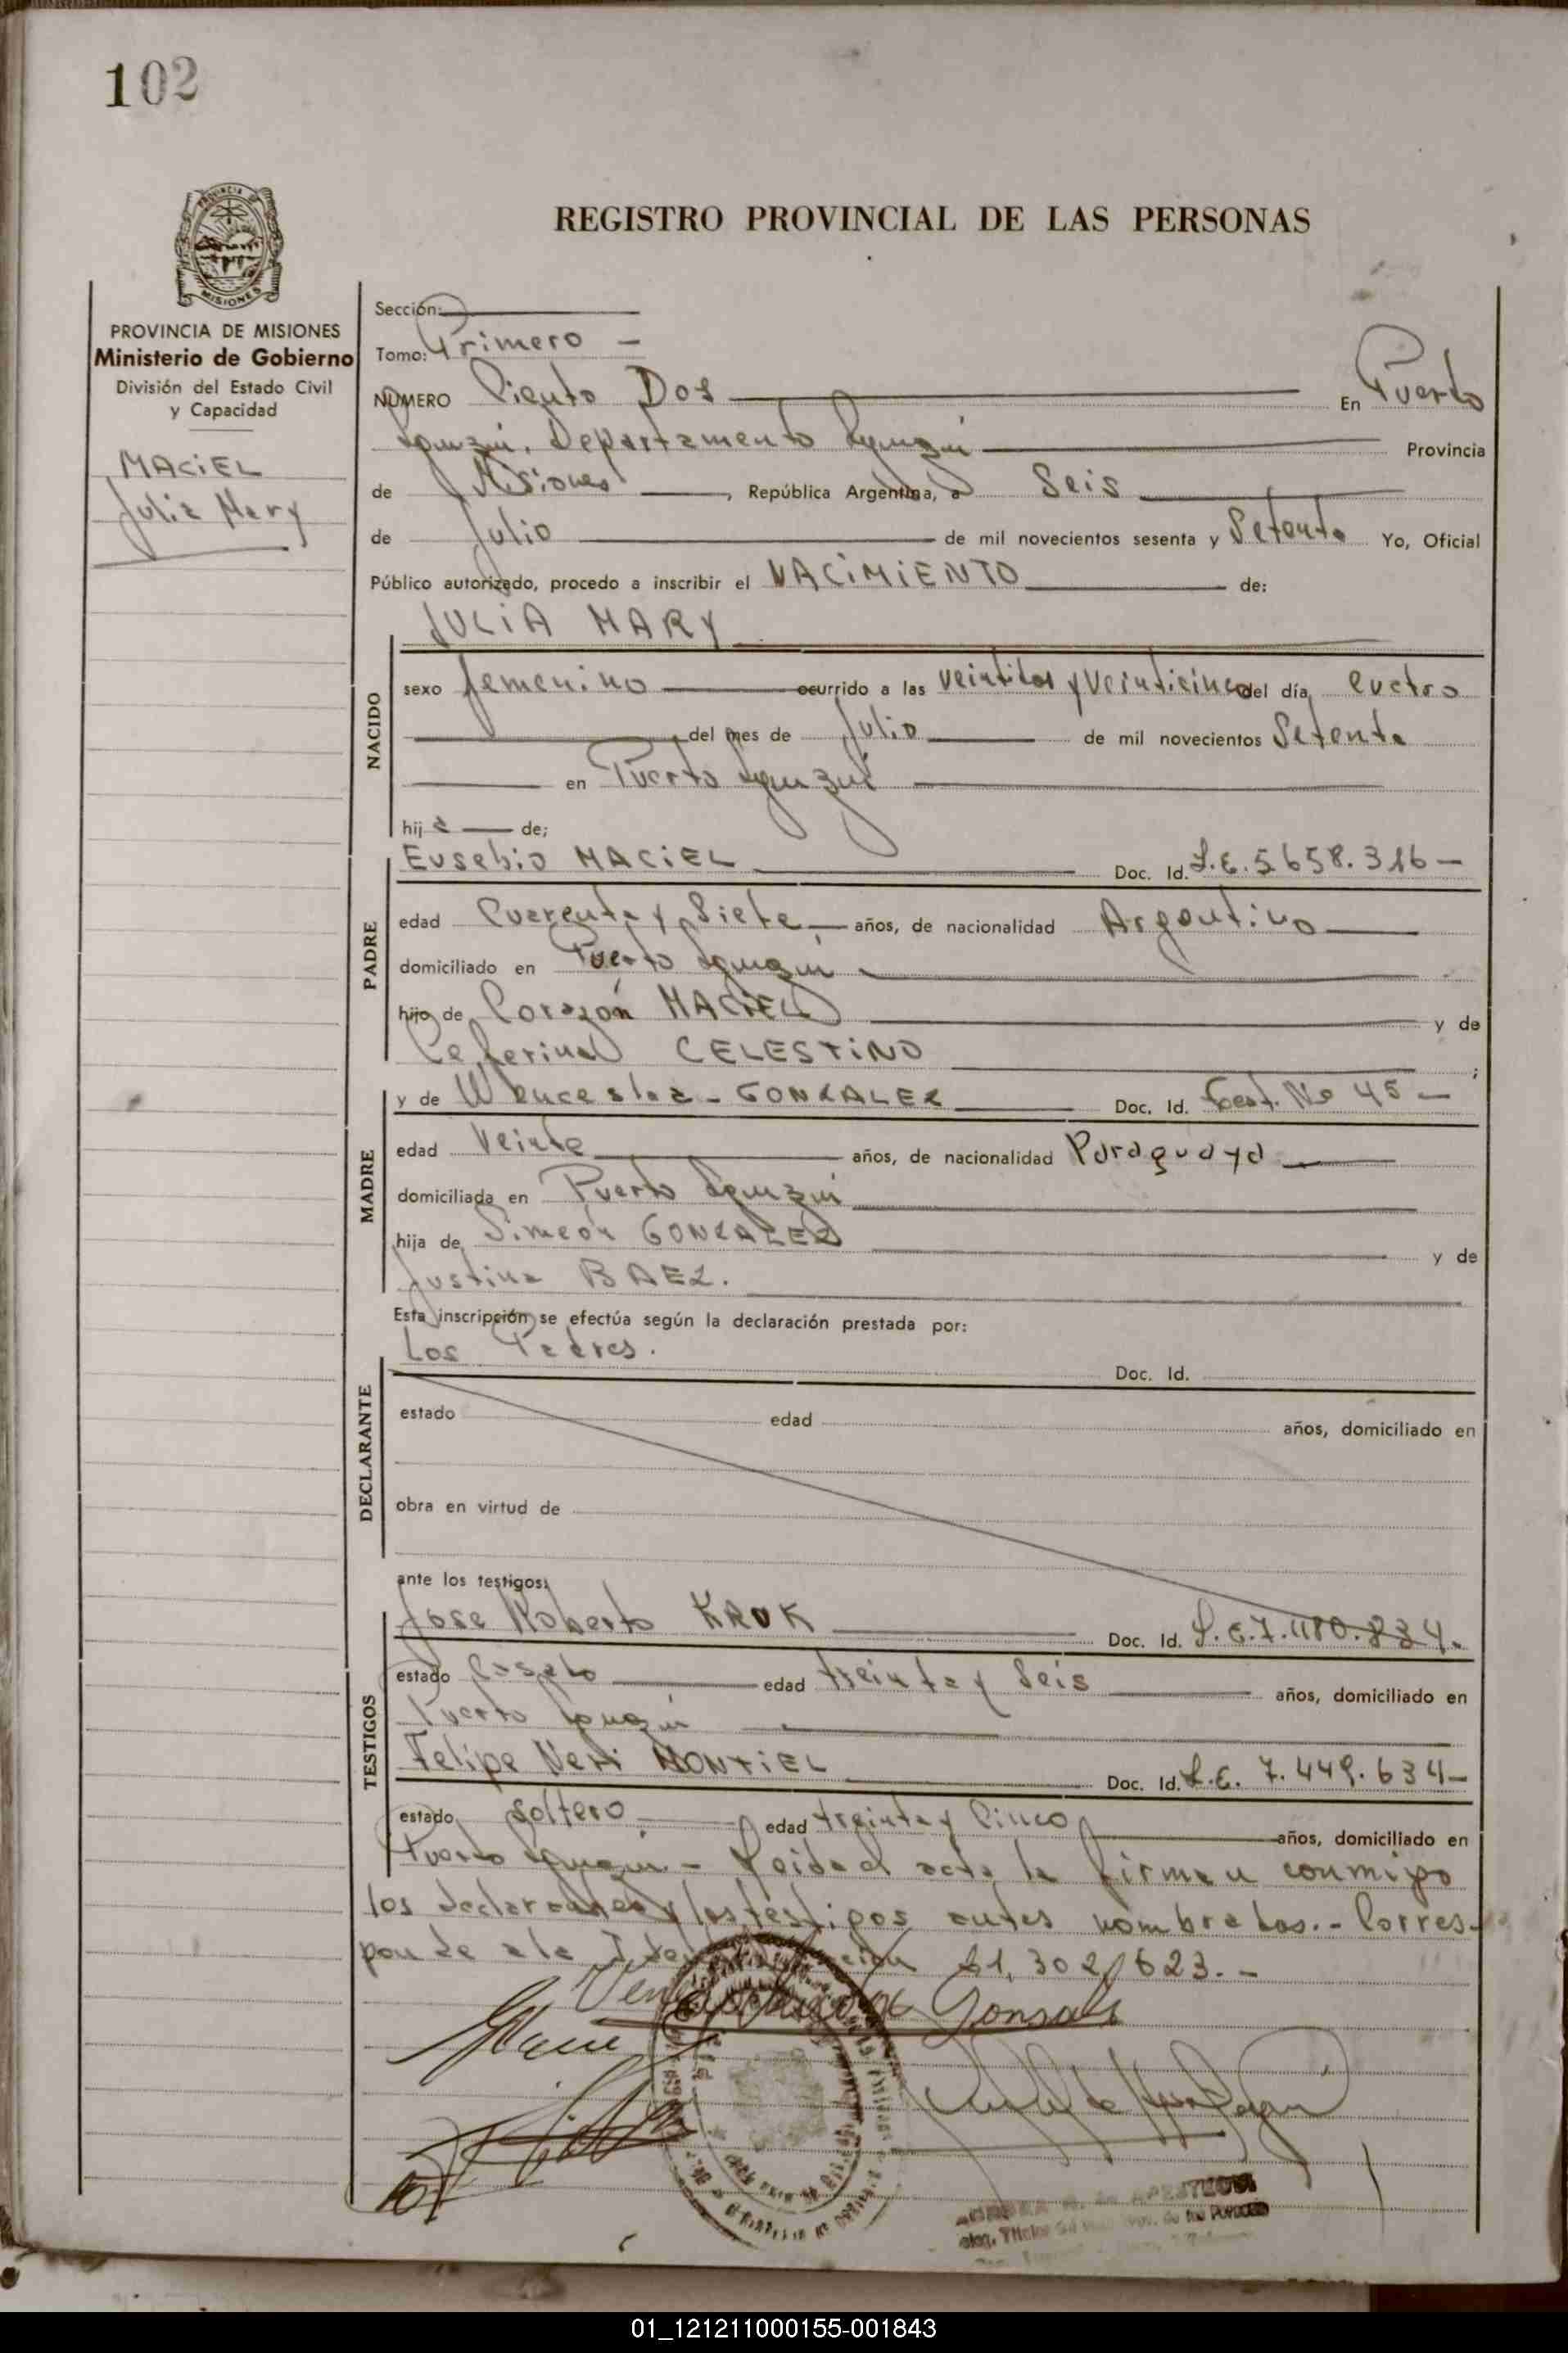 102
REGISTRO PROVINCIAL DE LAS PERSONAS
PROVINCIA DE MISIONES
Ministerio de Gobierno
División del Estado Civil
y Capacidad
MACIEL
Julia Mary
Sección:
Tomo: Primero -
NUMERO Ciento Dos En Puerto
Iguazú, Departamento Iguazú Provincia
de Misiones, República Argentina, a Seis
de Julio de mil novecientos sesenta y Setenta Yo, Oficial
Público autorizado, procedo a inscribir el NACIMIENTO de:
JULIA MARY
NACIDO
sexo femenino ocurrido a las veintidos y veinticinco del día cuatro
del mes de Julio de mil novecientos Setenta
en Puerto Iguazú
hij a de;
PADRE
Eusebio MACIEL Doc. Id. L.E. 5658.316-
edad Cuarenta y Siete años, de nacionalidad Argentino
domiciliado en Puerto Iguazú
hijo de Corazón MACIEL y de
Ceferina CELESTINO ;
MADRE
y de Wenceslaa - GONZALEZ Doc. Id. Cert. No 45-
edad Veinte años, de nacionalidad Paraguaya
domiciliada en Puerto Iguazú
hija de Simeón GONZALEZ y de
Justina BAEZ.
Esta inscripción se efectúa según la declaración prestada por:
DECLARANTE
Los Padres.
Doc. Id.
estado edad años, domiciliado en
obra en virtud de
ante los testigos:
TESTIGOS
Jose Roberto KRUK Doc. Id. L.E. 7.480.834.
estado Casado edad treinta y Seis años, domiciliado en
Puerto Iguazú
Felipe Neri MONTIEL Doc. Id. L.E. 7.449.634-
estado Soltero edad treinta y Cinco años, domiciliado en
Puerto Iguazú - Leida el acta la firman conmigo
los declarantes y los testigos antes nombrados.- Corres-
ponde a la 21.302.623.-
Gonsale
01_121211000155-001843